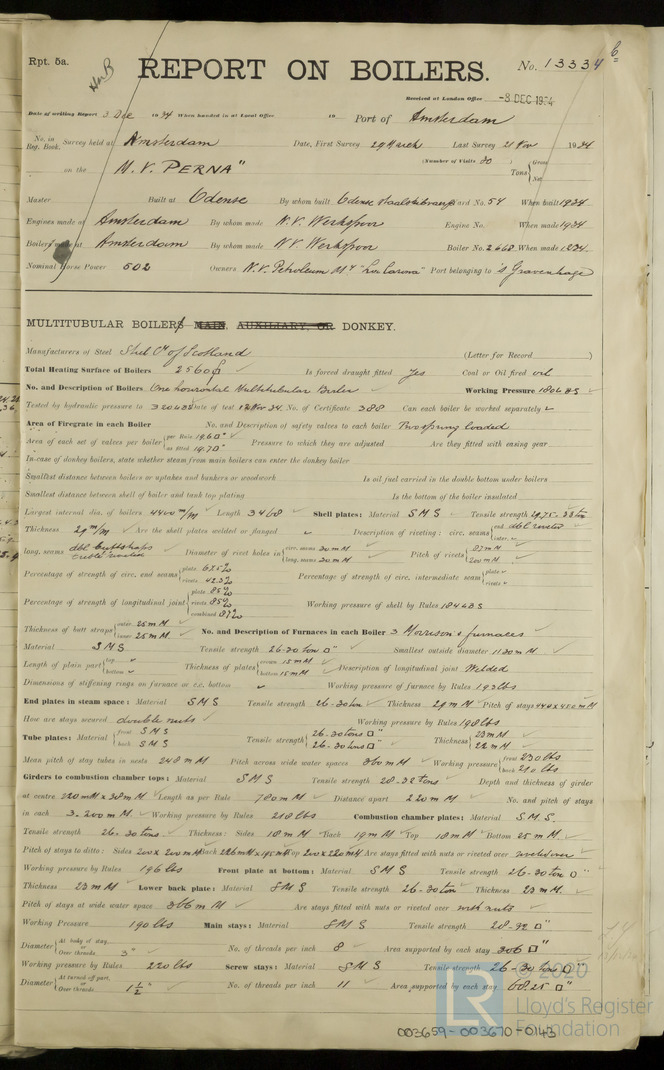 Rpt. 5a.
REPORT ON BOILERS.
No. 13334
Received at London Office -8 DEC 1934
Date of writing Report 3 Dec 1934 When handed in at Local Office 19 Port of Amsterdam
No. in Reg. Book. Survey held at Amsterdam Date, First Survey 29 March Last Survey 21 Nov 1934
(Number of Visits 30)
on the M.V. PERNA" Tons { Gross Net
Master Built at Odense By whom built Odense Yard No. 54 When built 1934
Engines made at Amsterdam By whom made N.V. Werkspoor Engine No. When made 1934
Boilers made at Amsterdam By whom made N.V. Werkspoor Boiler No. 2668 When made 1934
Nominal Horse Power 502 Owners N.V. Petroleum My "La Corona" Port belonging to 's Gravenhage
MULTITUBULAR BOILERS MAIN, AUXILIARY, OR DONKEY.
Manufacturers of Steel Steel Co of Scotland (Letter for Record )
Total Heating Surface of Boilers 2560 Is forced draught fitted Yes Coal or Oil fired oil
No. and Description of Boilers One horizontal Multitubular Boiler Working Pressure 180 LBS
Tested by hydraulic pressure to 320 LBS Date of test 12 Nov 34. No. of Certificate 388 Can each boiler be worked separately
Area of Firegrate in each Boiler No. and Description of safety valves to each boiler Two spring loaded
Area of each set of valves per boiler { per Rule 19.60" as fitted 19.70" Pressure to which they are adjusted Are they fitted with easing gear
In case of donkey boilers, state whether steam from main boilers can enter the donkey boiler
Smallest distance between boilers or uptakes and bunkers or woodwork Is oil fuel carried in the double bottom under boilers
Smallest distance between shell of boiler and tank top plating Is the bottom of the boiler insulated
Largest internal dia. of boilers 4400 m/m Length 3468 Shell plates: Material S M S Tensile strength 29.75-33 ton
Thickness 29 m/m Are the shell plates welded or flanged Description of riveting: circ. seams { end dbl riveted inter.
long. seams dbl buttstraps treble riveted Diameter of rivet holes in { circ. seams 30 mM long. seams 30 mM Pitch of rivets { 87 mM 200 mM
Percentage of strength of circ. end seams { plate 65.5% rivets 42.3% Percentage of strength of circ. intermediate seam { plate rivets
Percentage of strength of longitudinal joint { plate 85% rivets 85% combined 87% Working pressure of shell by Rules 184 LBS
Thickness of butt straps { outer 25 mM inner 25 mM No. and Description of Furnaces in each Boiler 3 Morrison furnaces
Material S M S Tensile strength 26-30 ton □" Smallest outside diameter 1130 mM
Length of plain part { top bottom Thickness of plates { crown 15 mM bottom 15 mM Description of longitudinal joint Welded
Dimensions of stiffening rings on furnace or c.c. bottom Working pressure of furnace by Rules 193 lbs
End plates in steam space: Material S M S Tensile strength 26-30 ton Thickness 29 mM Pitch of stays 444 x 450 mM
How are stays secured double nuts Working pressure by Rules 190 lbs
Tube plates: Material { front S M S back S M S Tensile strength { 26-30 tons □" 26-30 tons □" Thickness { 23 mM 22 mM
Mean pitch of stay tubes in nests 248 mM Pitch across wide water spaces 360 mM Working pressure { front 230 lbs back 210 lbs
Girders to combustion chamber tops: Material S M S Tensile strength 28-32 tons Depth and thickness of girder
at centre 220 mM x 38 mM Length as per Rule 780 mM Distance apart 220 mM No. and pitch of stays
in each 3. 200 mM Working pressure by Rules 218 lbs Combustion chamber plates: Material S M S.
Tensile strength 26-30 tons. Thickness: Sides 18 mM Back 19 mM Top 18 mM Bottom 25 mM.
Pitch of stays to ditto: Sides 200 x 200 mM Back 226 mM x 195 mM Top 200 x 220 mM Are stays fitted with nuts or riveted over riveted over
Working pressure by Rules 196 lbs Front plate at bottom: Material S M S Tensile strength 26-30 ton □"
Thickness 23 mM Lower back plate: Material S M S Tensile strength 26-30 ton Thickness 23 mM.
Pitch of stays at wide water space 366 mM Are stays fitted with nuts or riveted over with nuts
Working Pressure 190 lbs Main stays: Material S M S Tensile strength 28-32 □"
Diameter { At body of stay, or Over threads 3" No. of threads per inch 8 Area supported by each stay 306 □"
Working pressure by Rules 220 lbs Screw stays: Material S M S Tensile strength 26-30 tons □"
Diameter { At turned off part, or Over threads 1 1/2" No. of threads per inch 11 Area supported by each stay 68.25 □"
© 2020
LR Lloyd's Register Foundation
003659-003670-0143